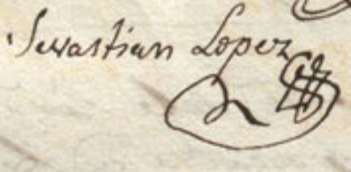 Sevastian Lopez